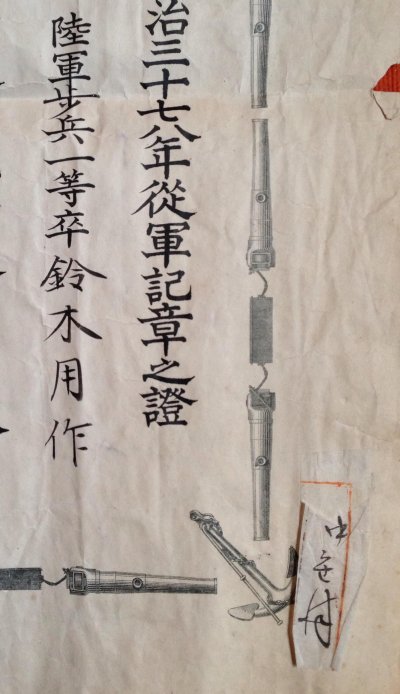 治三十七八年從軍記章之證
陸軍步兵一等卒鈴木用作